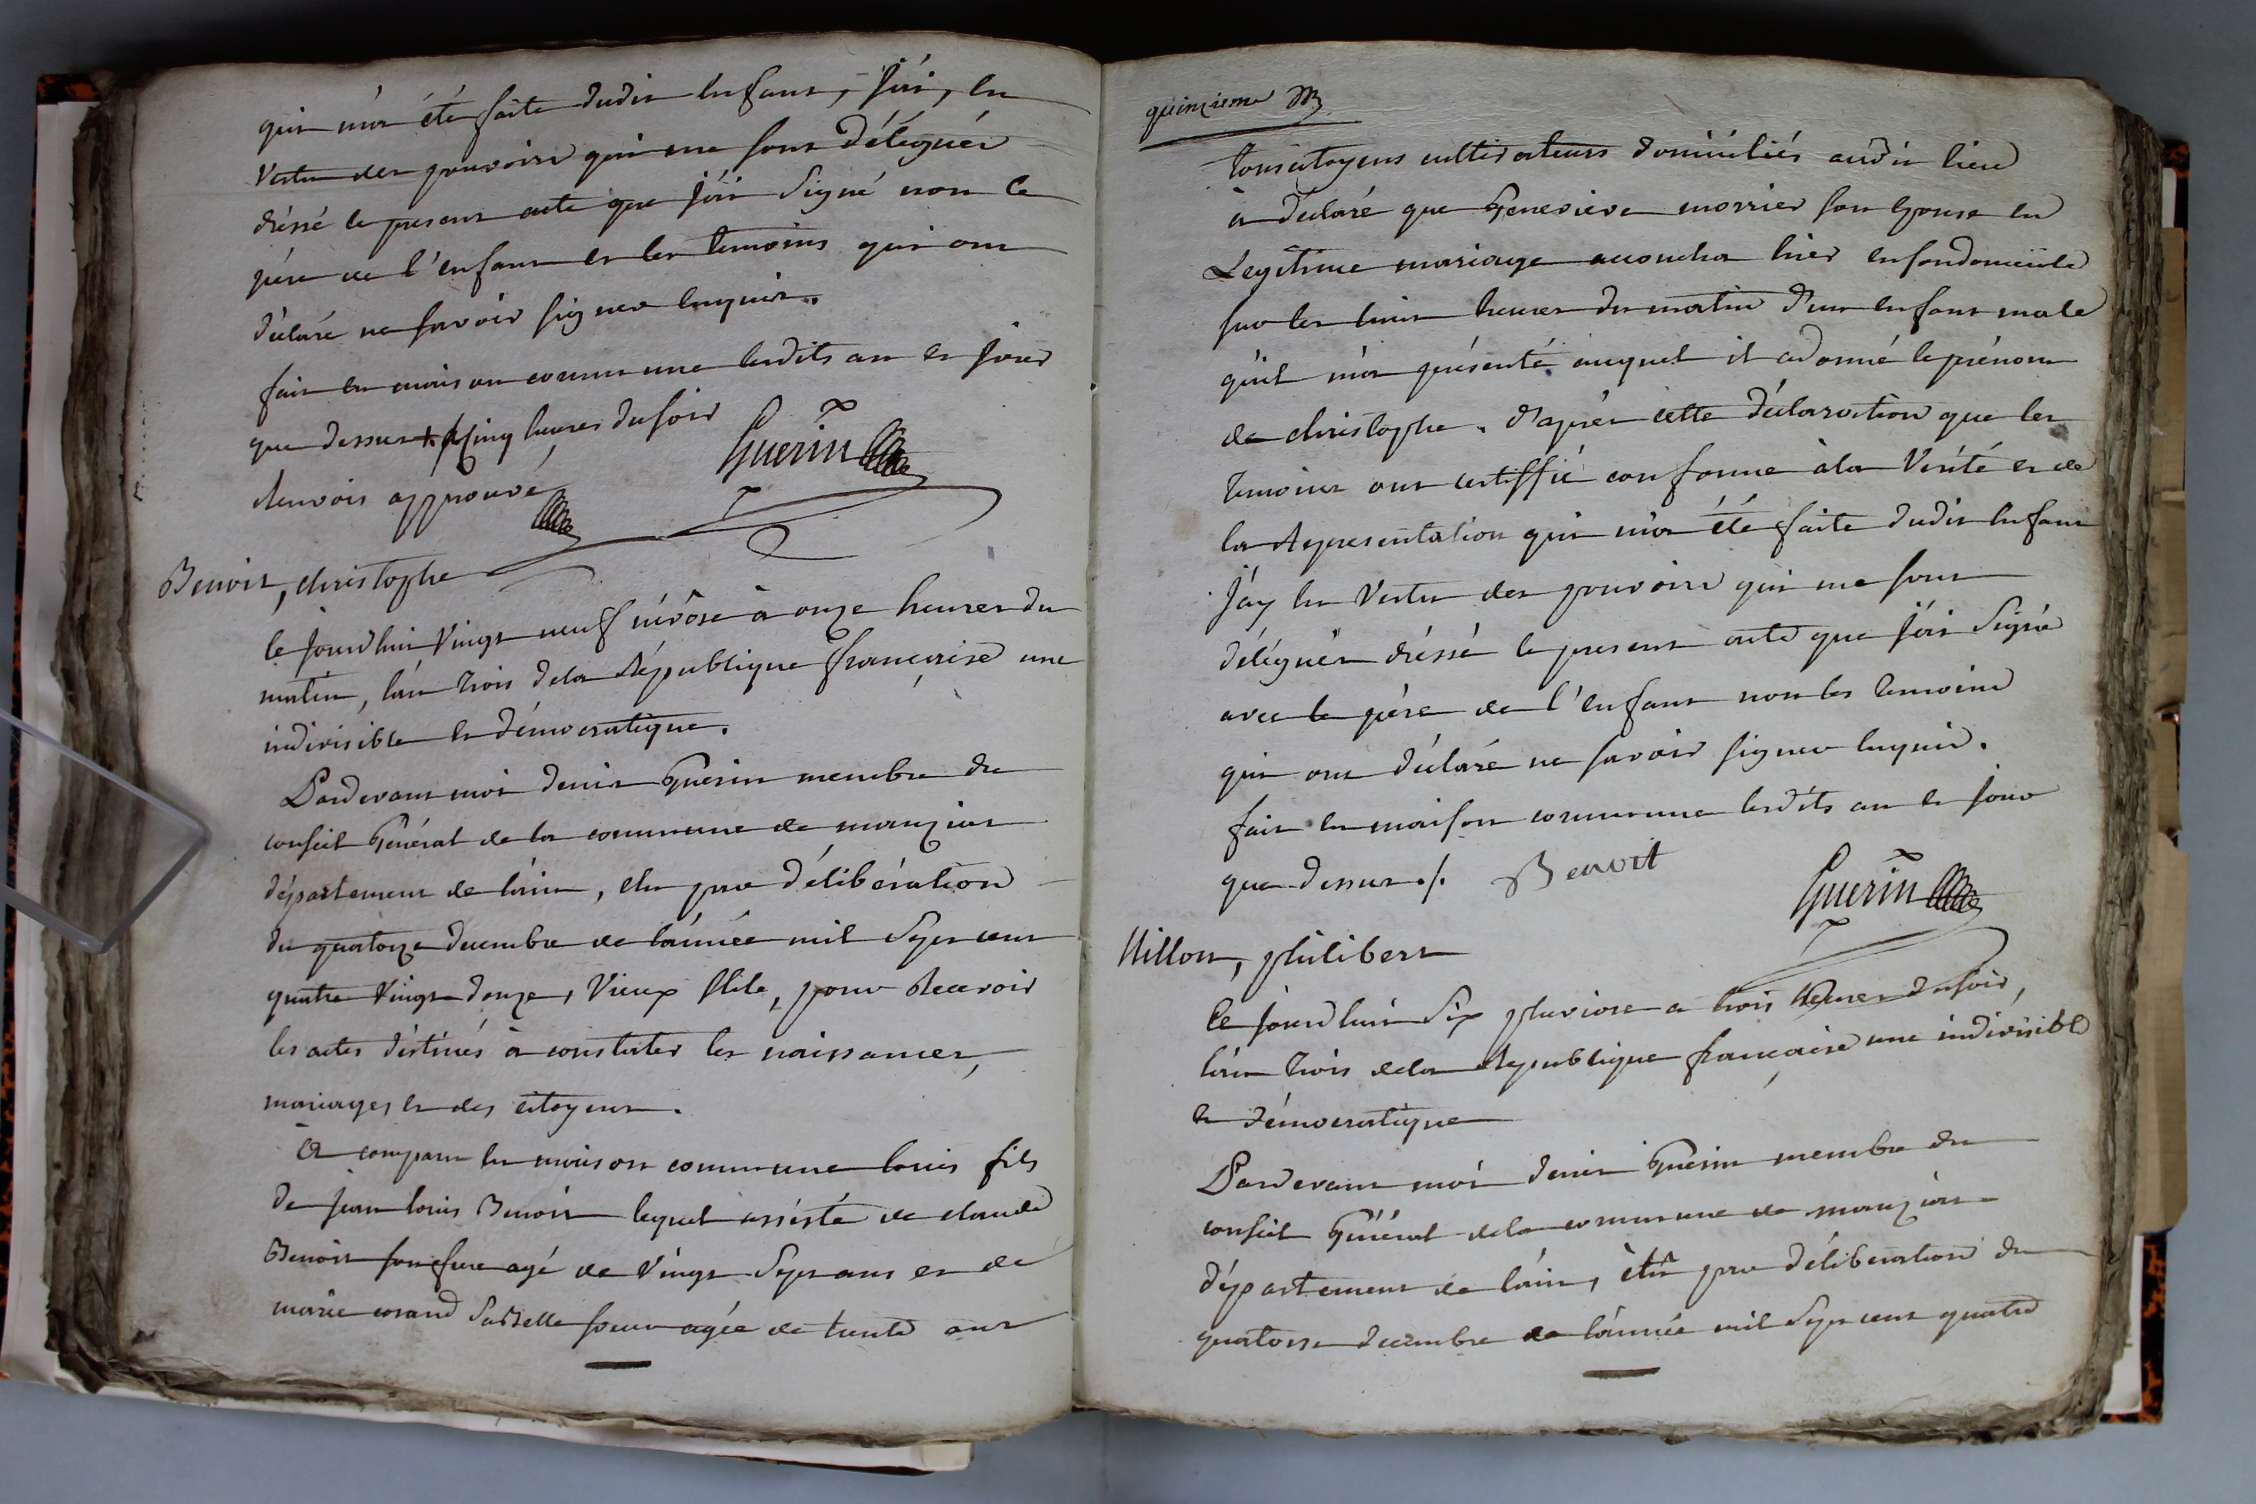 qui m'a été faite dudit enfant, j'ai, en
Vertu des pouvoirs qui me sont délégués
dréssé le present acte que j'ai signé non le
père de l'enfant et les temoins qui ont
déclaré ne savoir signer enquis.
fait en maison commune lesdits an et jour
que dessus cinq heures du soir
Renvois approuvé
Guerin
Benoit, christophe
le jourd'hui Vingt neuf nivôse à onze heures du
matin, l'an trois de la République française une
indivisible et démocratique.
Pardevant moi denis Guerin membre du
conseil Général de la commune de manziat
département de l'ain, élu par délibération
du quatorze decembre de l'année mil Sept cent
quatre Vingt douze, Vieux stile, pour Recevoir
les actes déstinés à constater les naissances,
mariages et des citoyens.
a comparu en maison commune louis fils
de jean louis Benoit lequel assisté de claude
Benoit son frere agé de Vingt Sept ans et de
marie sa belle soeur agée de trente ans
quinzieme
tous citoyens cultivateurs domiciliés audit lieu
a declaré que Genevieve morrier son Epouse en
Legitime mariage accoucha hier en son domicile
sur les huit heures du matin d'un enfant male
qu'il m'a présenté auquel il a donné le prénom
de christophe. d'après cette déclaration que les
temoins ont certiffié conforme à la Verité et de
la Representation qui m'a été faite dudit enfant
j'ay en Vertu des pouvoirs qui me sont
délégués dréssé le present acte que j'ai Signé
avec le père de l'enfant non les temoins
qui ont déclaré ne savoir signer enquis.
fait en maison commune lesdits an et jour
que dessus ./. Benoit
Guerin
Millon, philibert
le jourd'hui Six pluviose a trois heures du soir,
l'an trois de la Republique française une indivisible
et démocratique
Pardevant moi denis Guerin membre du
conseil Général de la commune de manziat
département de l'ain, élu par délibération du
quatorze decembre de l'année mil Sept cent quatre